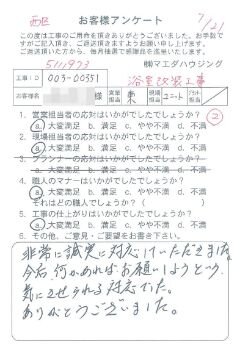 西区
7/21
お客様アンケート
この度は工事のご用命を頂きありがとうございました。お手数で
すがご記入頂き、ご返送頂きますようお願い申し上げます。
ご返送いただいた方に、毎月抽選で感謝品を進呈いたします。
5111973
㈱マエダハウジング
工事ID 003-00351
浴室改装工事
お客様名 様 営業担当 東 現場担当 ユニット プラン担当
②
1. 営業担当者の応対はいかがでしたでしょうか?
a. 大変満足 b. 満足 c. やや不満 d. 不満
2. 現場担当者の応対はいかがでしたでしょうか?
a. 大変満足 b. 満足 c. やや不満 d. 不満
3. プランナーの応対はいかがでしたでしょうか?
a. 大変満足 b. 満足 c. やや不満 d. 不満
4. 職人のマナーはいかがでしたでしょうか?
a. 大変満足 b. 満足 c. やや不満 d. 不満
それはどの職人でしょうか? ( )
5. 工事の仕上がりはいかがでしたでしょうか?
a. 大変満足 b. 満足 c. やや不満 d. 不満
6. その他、ご意見・ご要望をお書き下さい。
非常に誠実に対応していただきました。
今后何かあればお願いしようという
気にさせられる対応でした。
ありがとうございました。